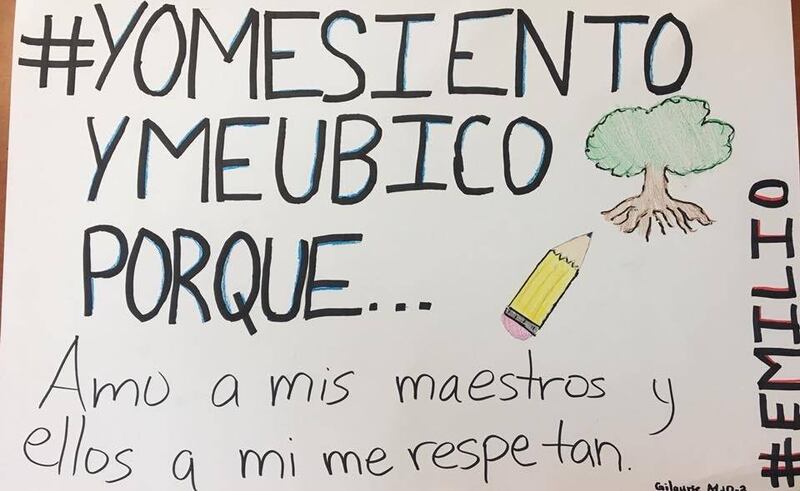 #YOMESIENTO
YMEUBICO
PORQUE...
Amo a mis maestros y
ellos a mi me respetan.
#EMILIO